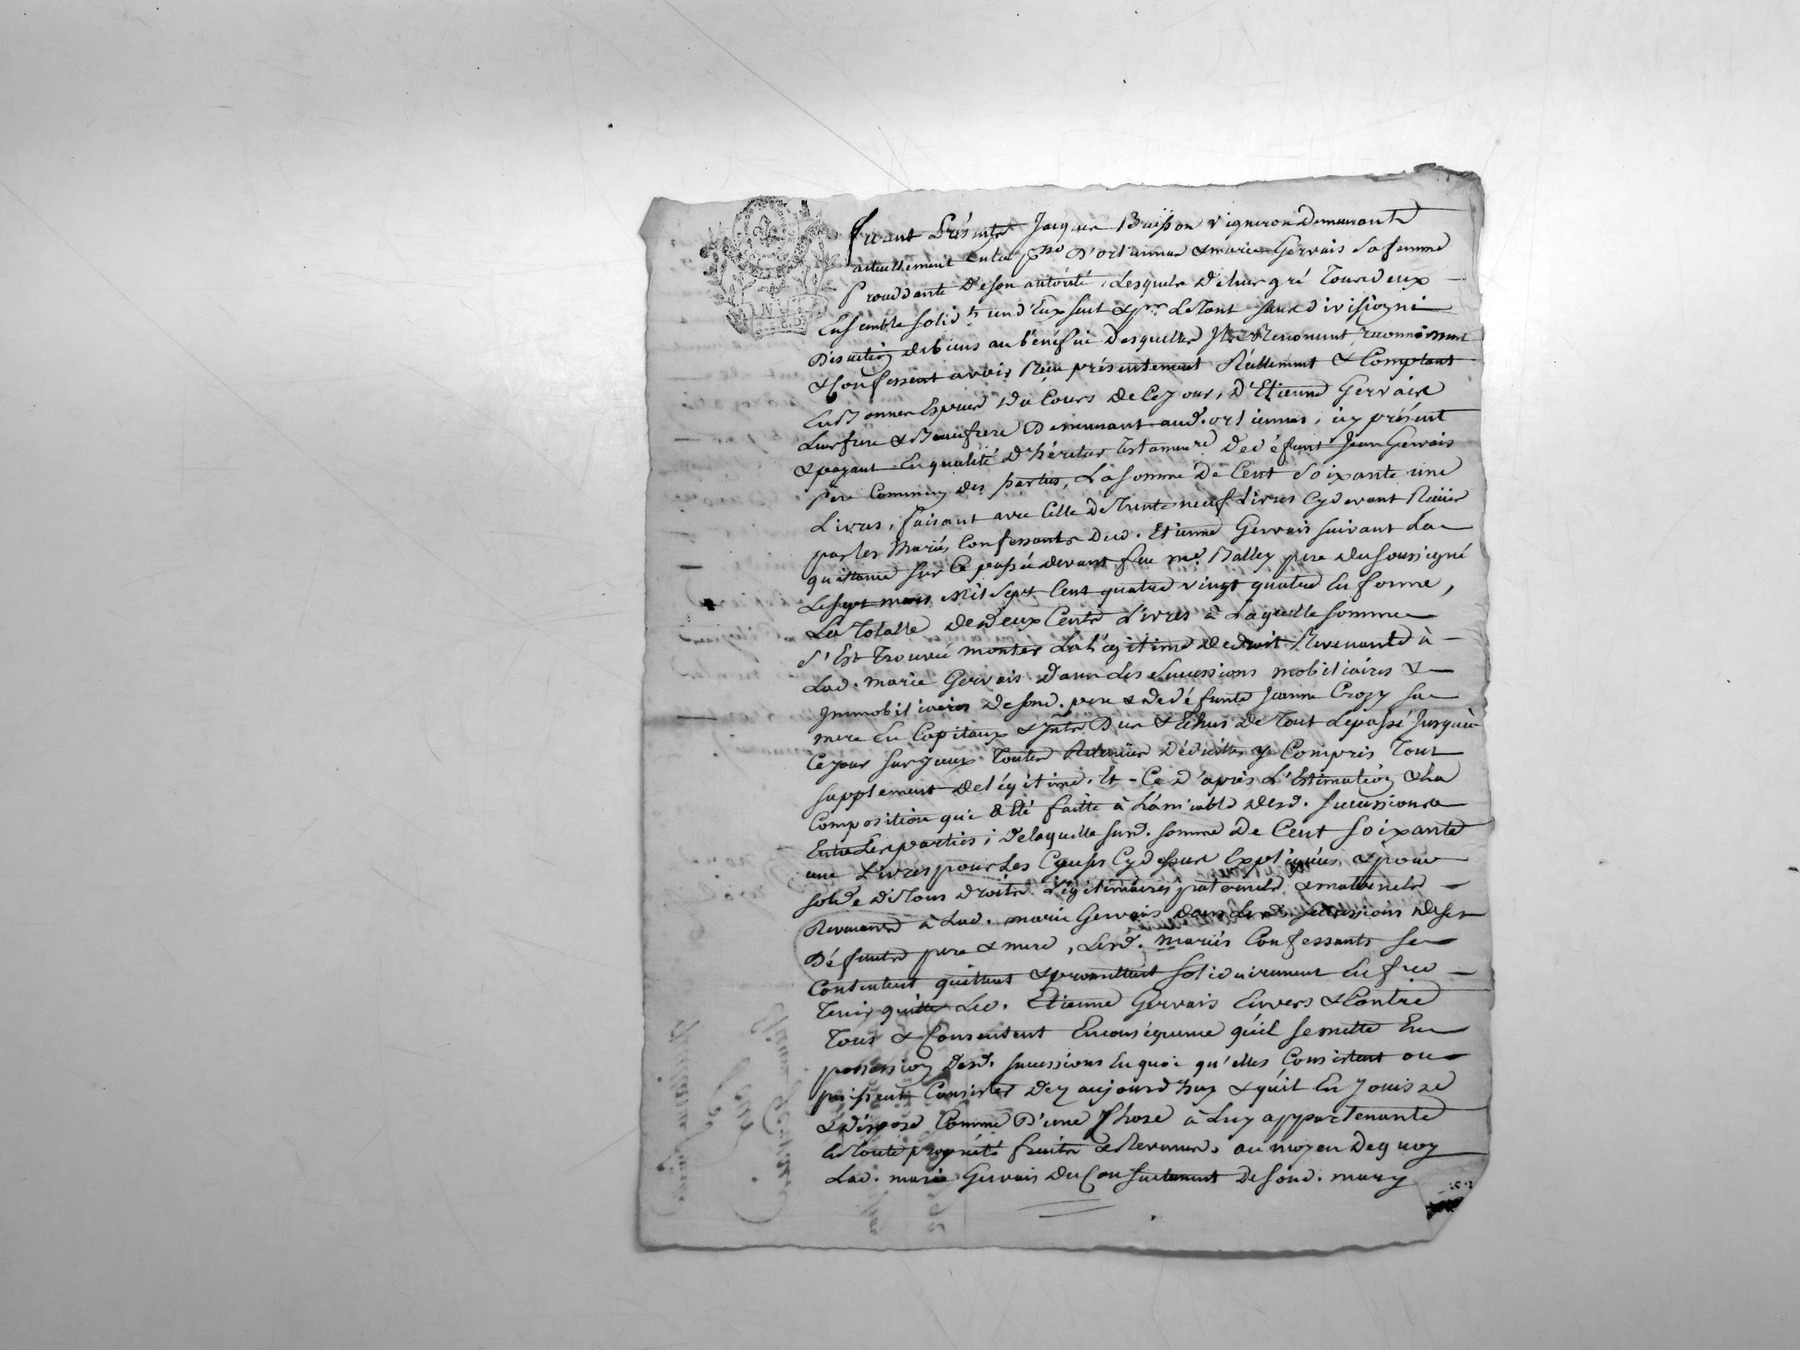 furent Présents Jacques Buisson vigneron demeurants
actuellement en la psse D'orliennas & marie Gervais sa femme
Procédante De son autorité, Lesquels De leur gré Tous deux
Ensemble solidt un d'Eux seul & pr Le Tout sans division ni
Discution de biens au bénéfice Desquelles Ils Renoncent, reconnoissent
& Confessent avoir Reçu présentement Réellement & Comptant
En Bonnes Espèces Du Cours De Ce Jour, D'Etienne Gervais
Leur frere & Beaufrere Demeurant aud. orliennas, icy présent
& payant En qualité D'héritier testamre De défunt Jean Gervais
pere Commun des parties, La somme De Cent Soixante une
Livres, faisant avec Celle De Trente neuf Livres Cydevant Reçües
par les Mariés Confessants Dud. Etienne Gervais suivant La
quittance sur Ce passée devant feu me Balley pere du soussigné
Le sept mars mil Sept Cent quatre vingt quatre En forme,
La Totalle De deux Cents Livres à Laquelle somme
s'Est Trouvée monter La légitime de droit Revenante à
Lad. marie Gervais dans Les Successions mobiliaires &
Immobiliaires De sond. pere & De défunte Jeanne Crozy sa
mere En Capitaux & Ints Dus & Echus de Tout Le passé Jusqu'à
Ce jour sur yceux Toutes Retenües Déduittes y Compris Tout
supplement de légitime. Et Ce d'après L'Estimation & La
Composition qui a Eté faitte à L'amiable Desd. Successions
Entre Les parties; De laquelle susd. somme De Cent soixante
une Livres pour Les Causes Cydessus Expliquées & pour
solde de Tous droits Légitimaires paternels & maternels
Revenants à Lad. marie Gervais dans Lesd. successions de ses
Défunts pere & mere, Lesd. mariés Confessants se
Contentent quittent & promettent solidairement En faire
Tenir quitte Led. Etienne Gervais Envers & Contre
Tous & Consentent En conséquence qu'il se mette En
possession Desd. successions En quoi qu'elles Consistent ou
puissent Consister Dez aujourd'huy & qu'il En Jouisse
& dispose Comme D'une Chose à Luy appartenante
En Toute propriété fruits & Revenus. au moyen De quoy
Lad. marie Gervais Du Consentement De sond. mary